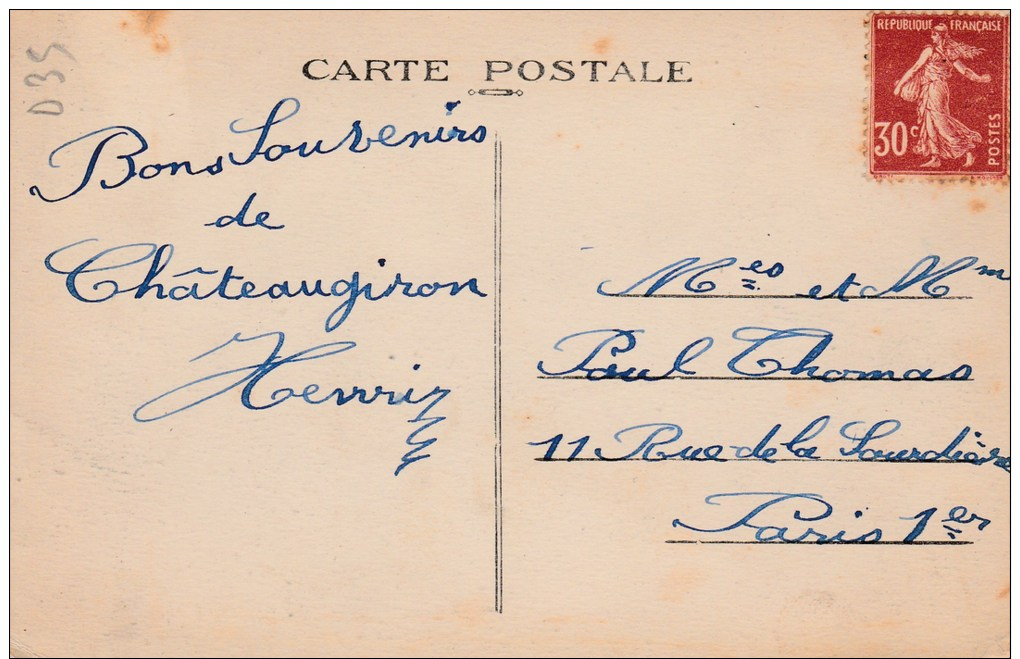 D35
CARTE POSTALE
REPUBLIQUE FRANÇAISE
30c
POSTES
Bons Souvenirs
de
Châteaugiron
M es et Mm
Paul Thomas
11 Rue de la Sourdière
Paris 1er